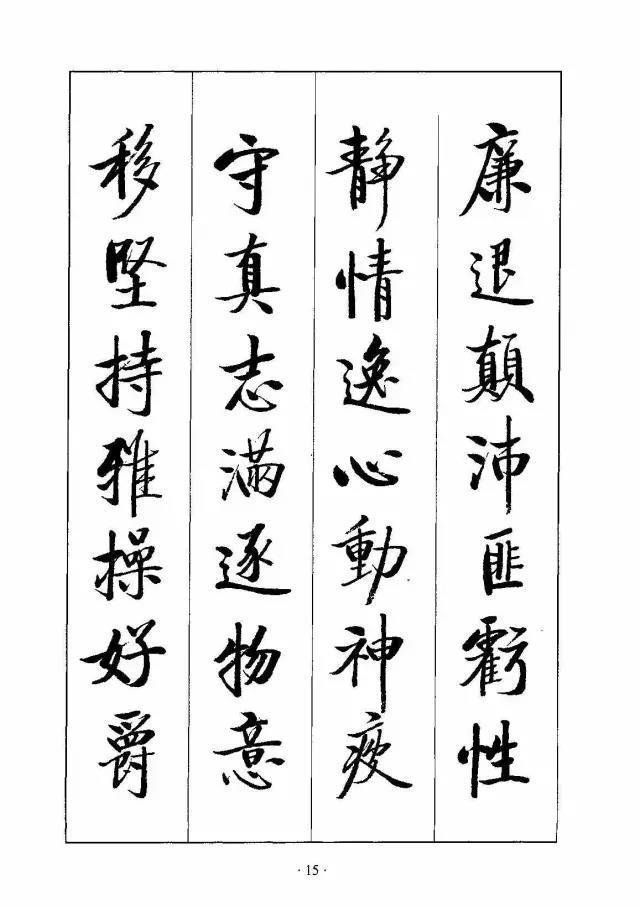 廉退顛沛匪虧性
静情逸心動神疲
守真志滿逐物意
移堅持雅操好爵
· 15 ·